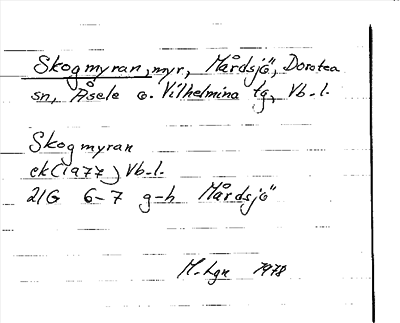 Skogmyran, myr, Mårdsjö, Dorotea
sn, Åsele o. Vilhelmina tg, Vb.l.
Skogmyran
ek(1977) Vb.l.
21G 6-7 g-h Mårdsjö
M. Lgn 1978